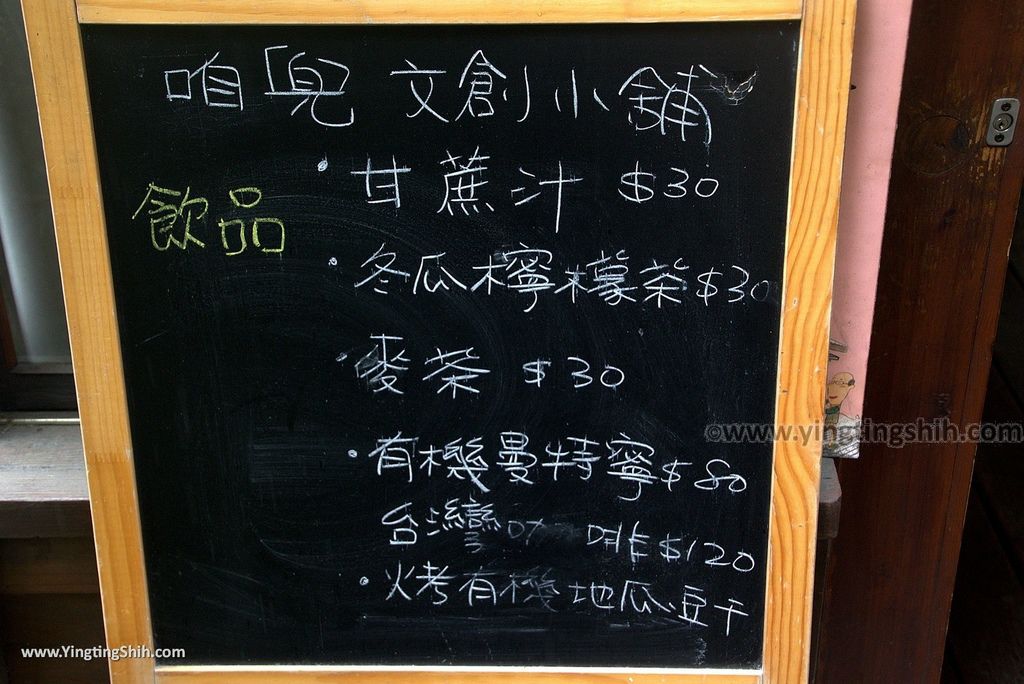 咱「兜」文創小舖
飲品
· 甘蔗汁 $30
· 冬瓜檸檬茶 $30
· 麥茶 $30
· 有機曼特寧 $80
台灣 啡 $120
· 火考有機地瓜豆干
©www.yingtingshih.com
www.YingtingShih.com